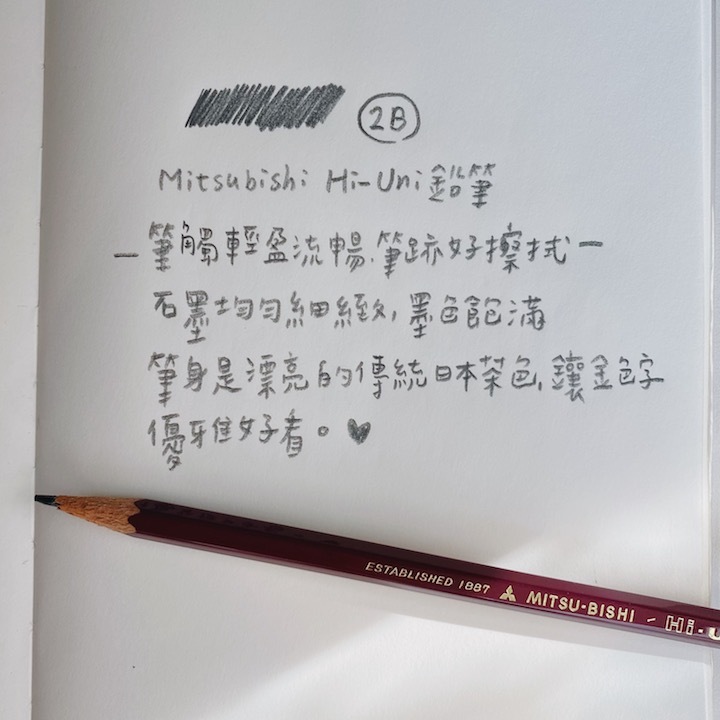 2B
Mitsubishi Hi-Uni鉛筆
－筆觸輕盈流暢,筆跡好擦拭－
石墨均勻細緻,墨色飽滿
筆身是漂亮的傳統日本茶色,鑲金色字
優雅好看。♥
ESTABLISHED 1887 MITSU-BISHI - Hi-u